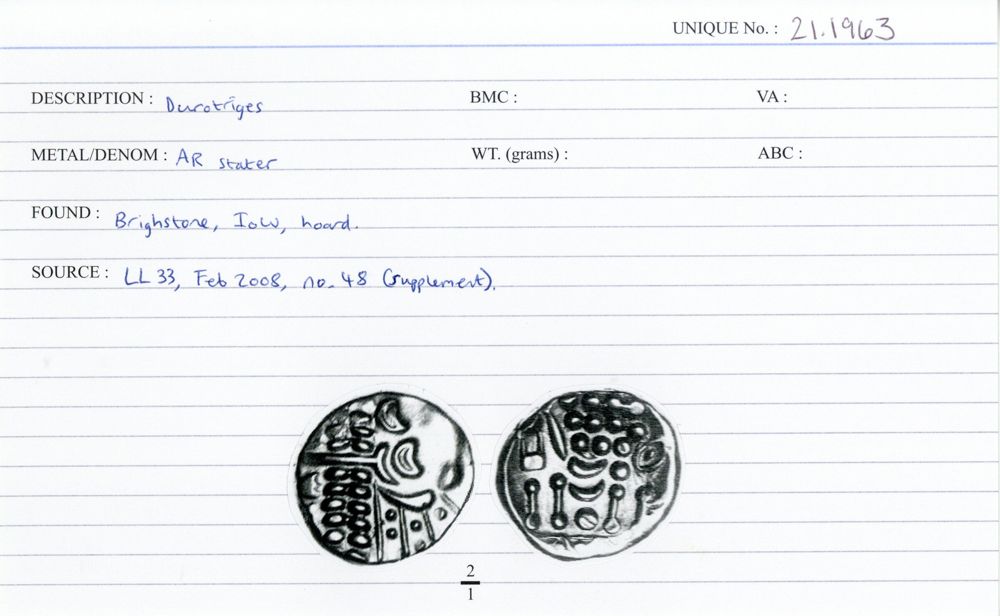 UNIQUE No. : 21.1963
DESCRIPTION : Durotriges BMC : VA :
METAL/DENOM : AR stater WT. (grams) : ABC :
FOUND : Brighstone, IoW, hoard.
SOURCE : LL 33, Feb 2008, no. 48 (supplement).
2
1